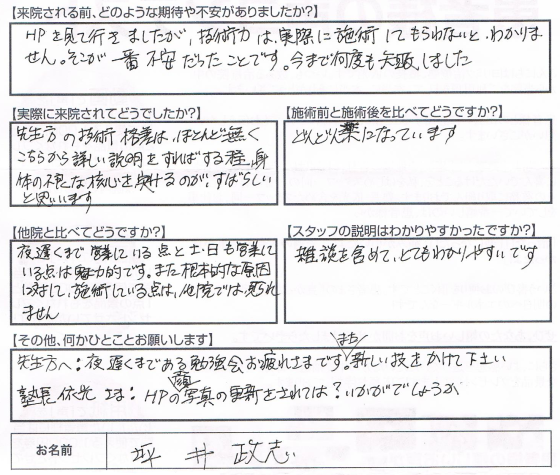 【来院される前、どのような期待や不安がありましたか?】
HPを見て行きましたが、技術力は、実際に施術してもらわないと、わかりま
せん。そこが一番不安だったことです。今まで何度も失敗しました
【実際に来院されてどうでしたか?】
先生方の技術格差は、ほとんど無く
こちらから詳しい説明をすればする程、身
体の不思な核心を突けるのが、すばらしい
と思います
【施術前と施術後を比べてどうですか?】
どんどん楽になっています
【他院と比べてどうですか?】
夜遅くまで営業している点と土・日も営業して
いる点は魅力的です。また根本的な原因
に対して、施術している点は、他院では見られ
ません
【スタッフの説明はわかりやすかったですか?】
雑談を含めて、とてもわかりやすいです
【その他、何かひとことお願いします】
先生方へ:夜遅くまである勉強会お疲れさまです。また新しい技をかけて下さい
塾長 様:HPの顔写真の更新をされては?いかがでしょうか
お名前
坪井 政志